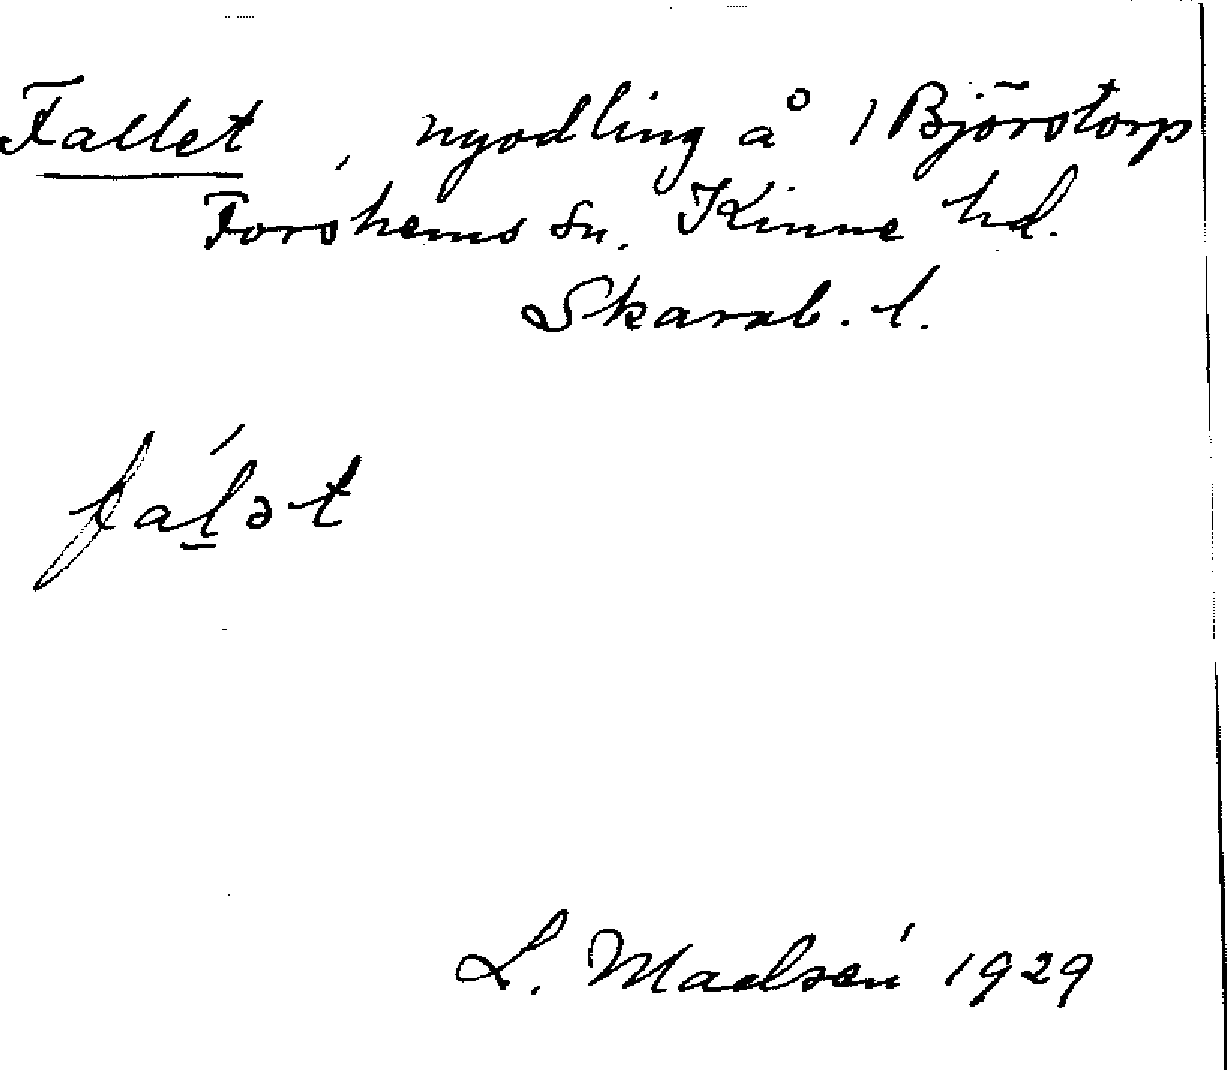 Fallet, nyodling å 1 Björstorp
Forshems sn. Kinne hd.
Skarab. l.
fál̲ət
L. Madsén 1929